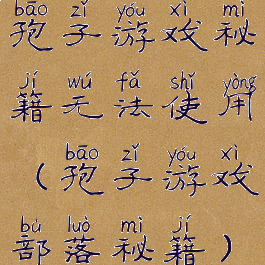 bāo zǐ yóu xì mì
孢子游戏秘
jí wú fǎ shǐ yòng
籍无法使用
bāo zǐ yóu xì
（孢子游戏
bù luò mì jí
部落秘籍）